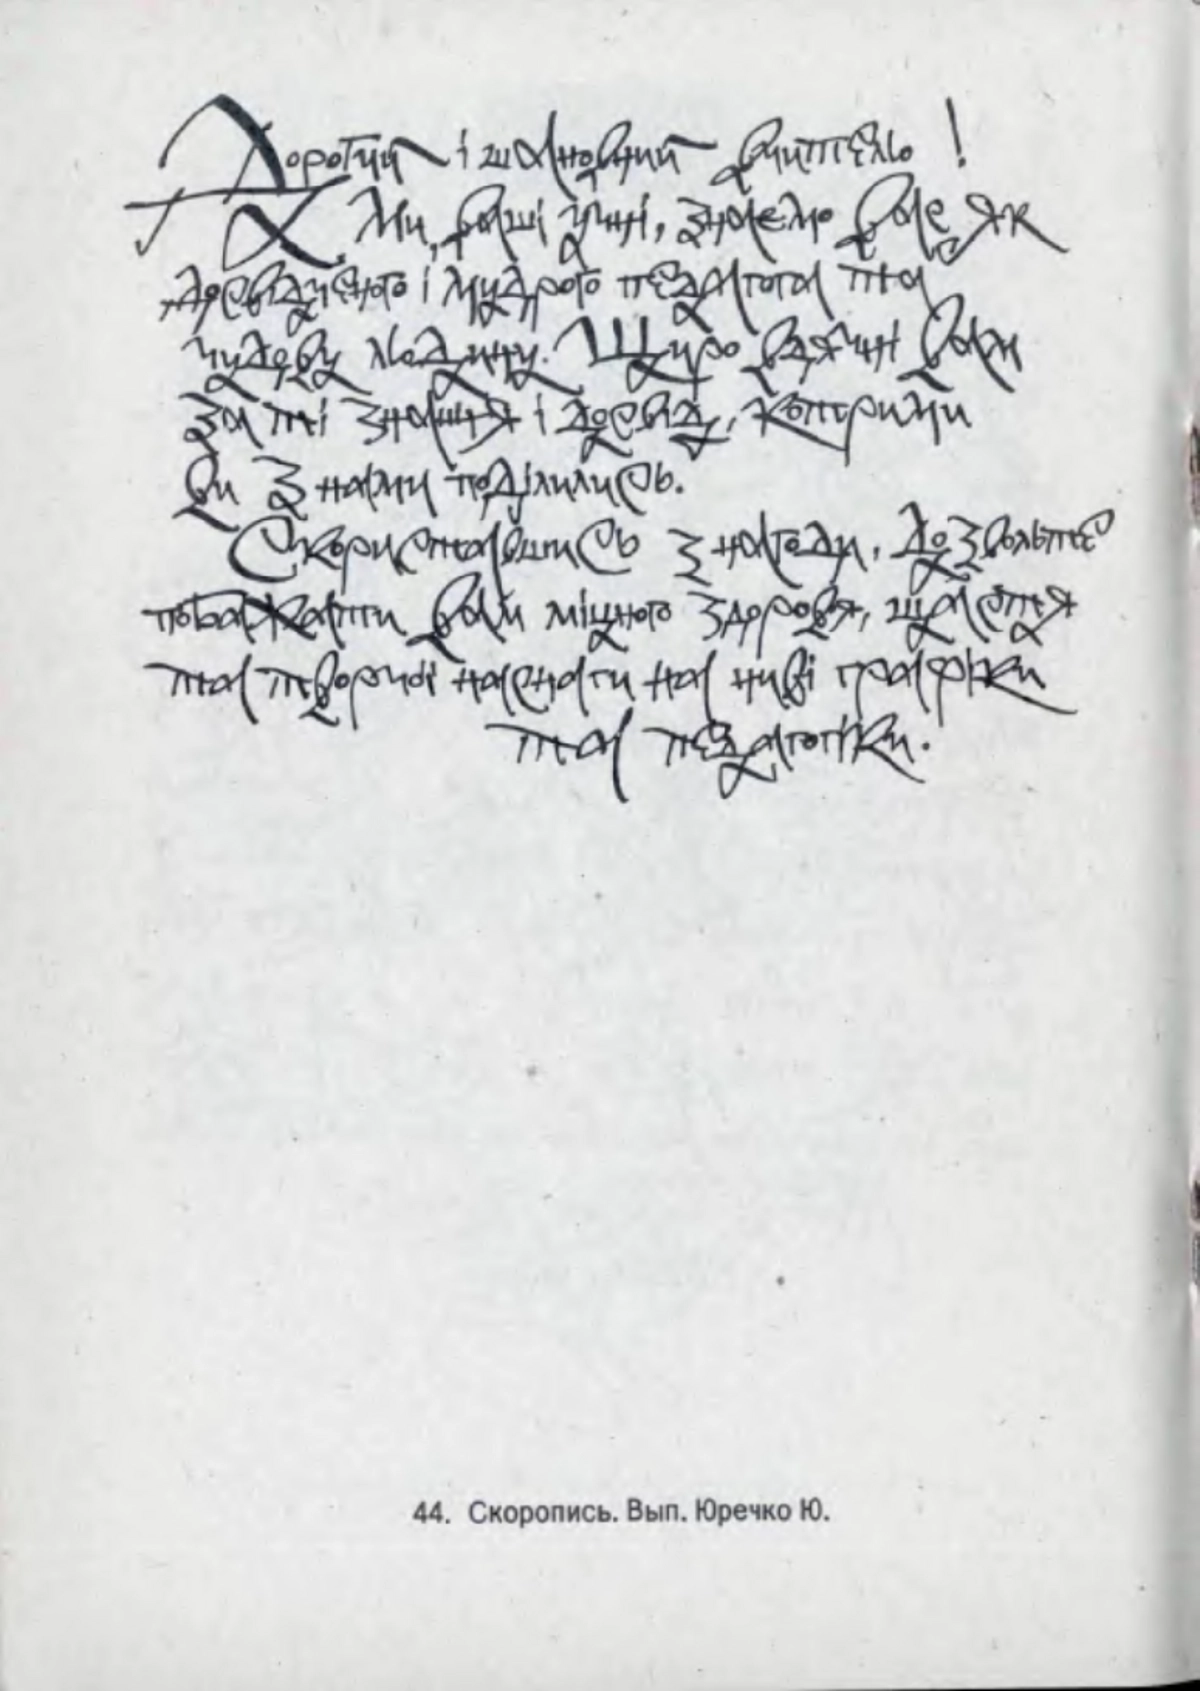 Дорогий і шановний вчителю!
Ми, ваші учні, знаємо Вас як
досвідченого і мудрого педагога та
чудову людину. Щиро вдячні Вам
за ті знання і досвід, котрими
Ви з нами поділились.
Скориставшись з нагоди, дозвольте
побажати Вам міцного здоровя, щастя
та творчої наснаги на ниві графіки
та педагогіки.
44. Скоропись. Вып. Юречко Ю.